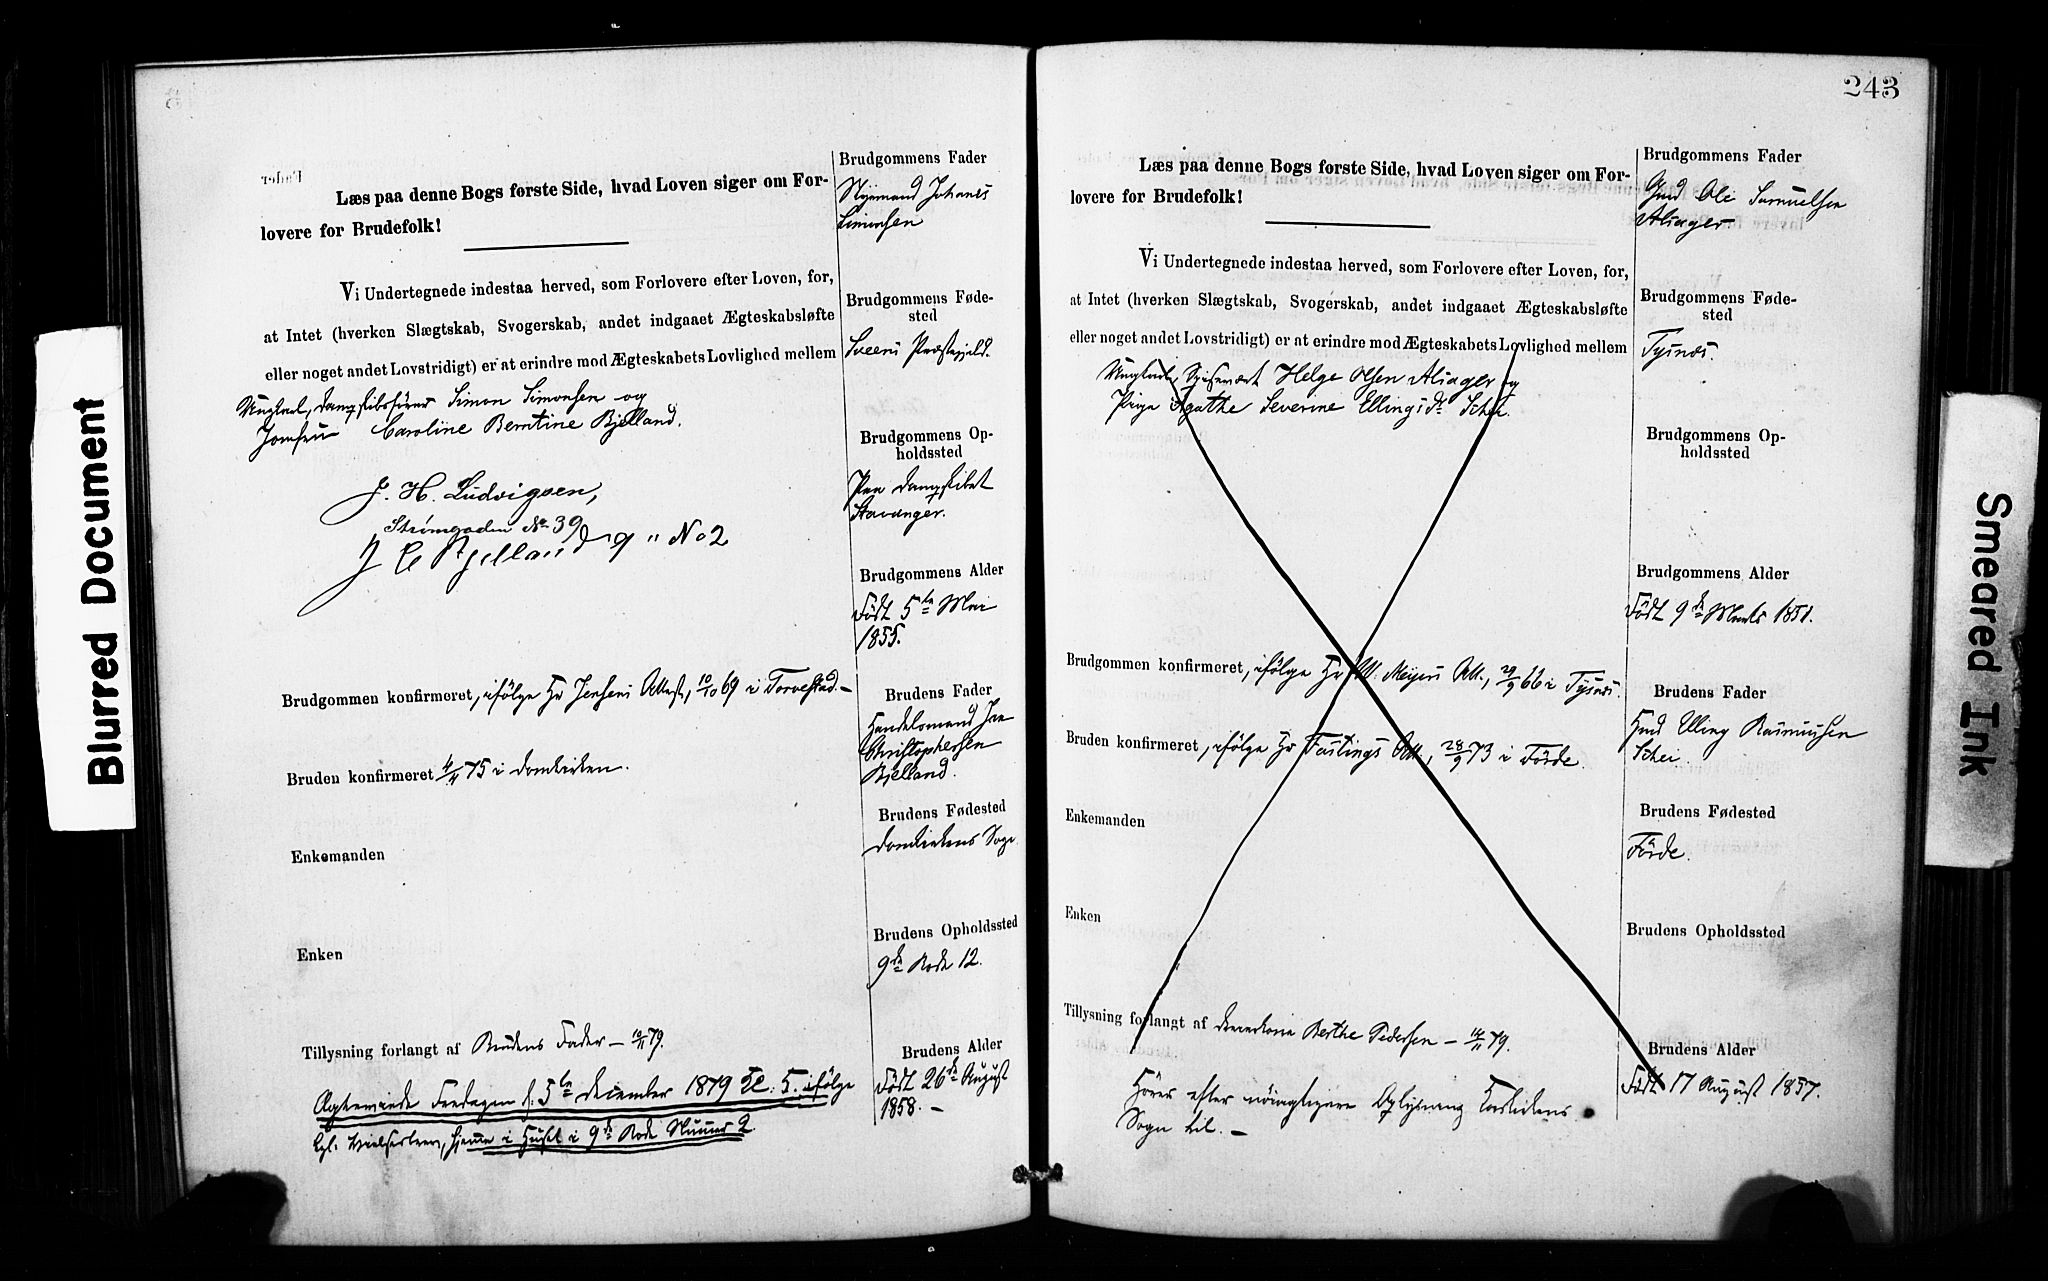 Blurred Document
Fader
Læs paa denne Bogs første Side, hvad Loven siger om For-
lovere for Brudefolk!
Vi Undertegnede indestaa herved, som Forlovere efter Loven, for,
at Intet (hverken Slægtskab, Svogerskab, andet indgaaet Ægteskabsløfte
eller noget andet Lovstridigt) er at erindre mod Ægteskabets Lovlighed mellem
Ungkarl, Dampskibsfører Simon Simonsen og
Jomfru Caroline Berntine Bjelland.
J. H. Ludvigsen,
Strømgaden No 39
J C Bjelland 9 " No 2
Brudgommen konfirmeret, ifölge Hr Jensens Attest, 10/10 69 i Torvestad. –
Bruden konfirmeret 4/11 75 i Domkirken.
Enkemanden
Enken
Tillysning forlangt af Brudens Fader – 10/11 79.
Ægteviede Fredagen d. 5te December 1879 Kl: 5. ifölge
kgl: , hjemme i Huset i 9de Rode Nummer 2.
Brudgommens Fader
Johanes
Simonsen
Brudgommens Føde-
sted
Sveens Præstegjeld.
Brudgommens Op-
holdssted
Paa Dampskibet
Stavanger.
Brudgommens Alder
Födt 5te Mai
1855.
Brudens Fader
Handelsmand Jan
Christophersen
Bjelland.
Brudens Fødested
Domkirkens Sogn
Brudens Opholdssted
9de Rode 12.
Brudens Alder
Födt 26de August
1858. –
243
Læs paa denne Bogs første Side, hvad Loven siger om For-
lovere for Brudefolk!
Vi Undertegnede indestaa herved, som Forlovere efter Loven, for,
at Intet (hverken Slægtskab, Svogerskab, andet indgaaet Ægteskabsløfte
eller noget andet Lovstridigt) er at erindre mod Ægteskabets Lovlighed mellem
Ungkarl, Spisevært Helge Olsen Aliager og
Pige Agathe Severine Ellingsdr Schei.
Brudgommen konfirmeret, ifölge Hr Meyers Att., 29/9 66 i Tysnæs.
Bruden konfirmeret, ifölge Hr Fastings Att., 28/9 73 i Förde.
Enkemanden
Enken
Tillysning forlangt af Berthe Pedersen – 14/11 79.
Hörer efter nöiagtigere Oplysning Korskirkens
Sogn til. –
Brudgommens Fader
Gmd Ole Samuelsen
Aliager
Brudgommens Føde-
sted
Tysnæs.
Brudgommens Op-
holdssted
Brudgommens Alder
Födt 9de Marts 1851.
Brudens Fader
Gmd Elling Rasmussen
Schei.
Brudens Fødested
Förde.
Brudens Opholdssted
Brudens Alder
Födt 17 August 1857.
Smeared Ink